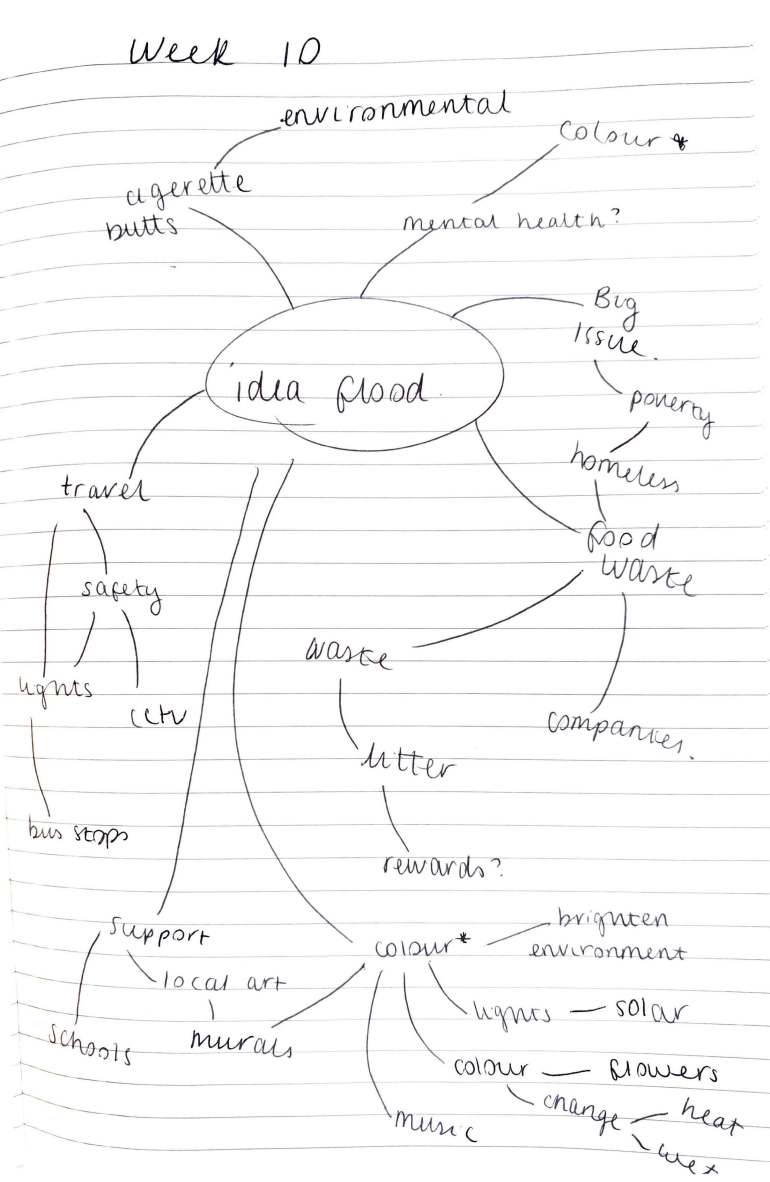 Week 10
environmental
colour *
cigerette
butts
mental health?
Big
Issue.
idea flood
poverty
homeless
travel
food
waste
safety
waste
lights
cctv
companies.
litter
bus stops
rewards?
support
colour*
brighten
environment
local art
lights — solar
schools
murals
colour — flowers
change
heat
music
wet